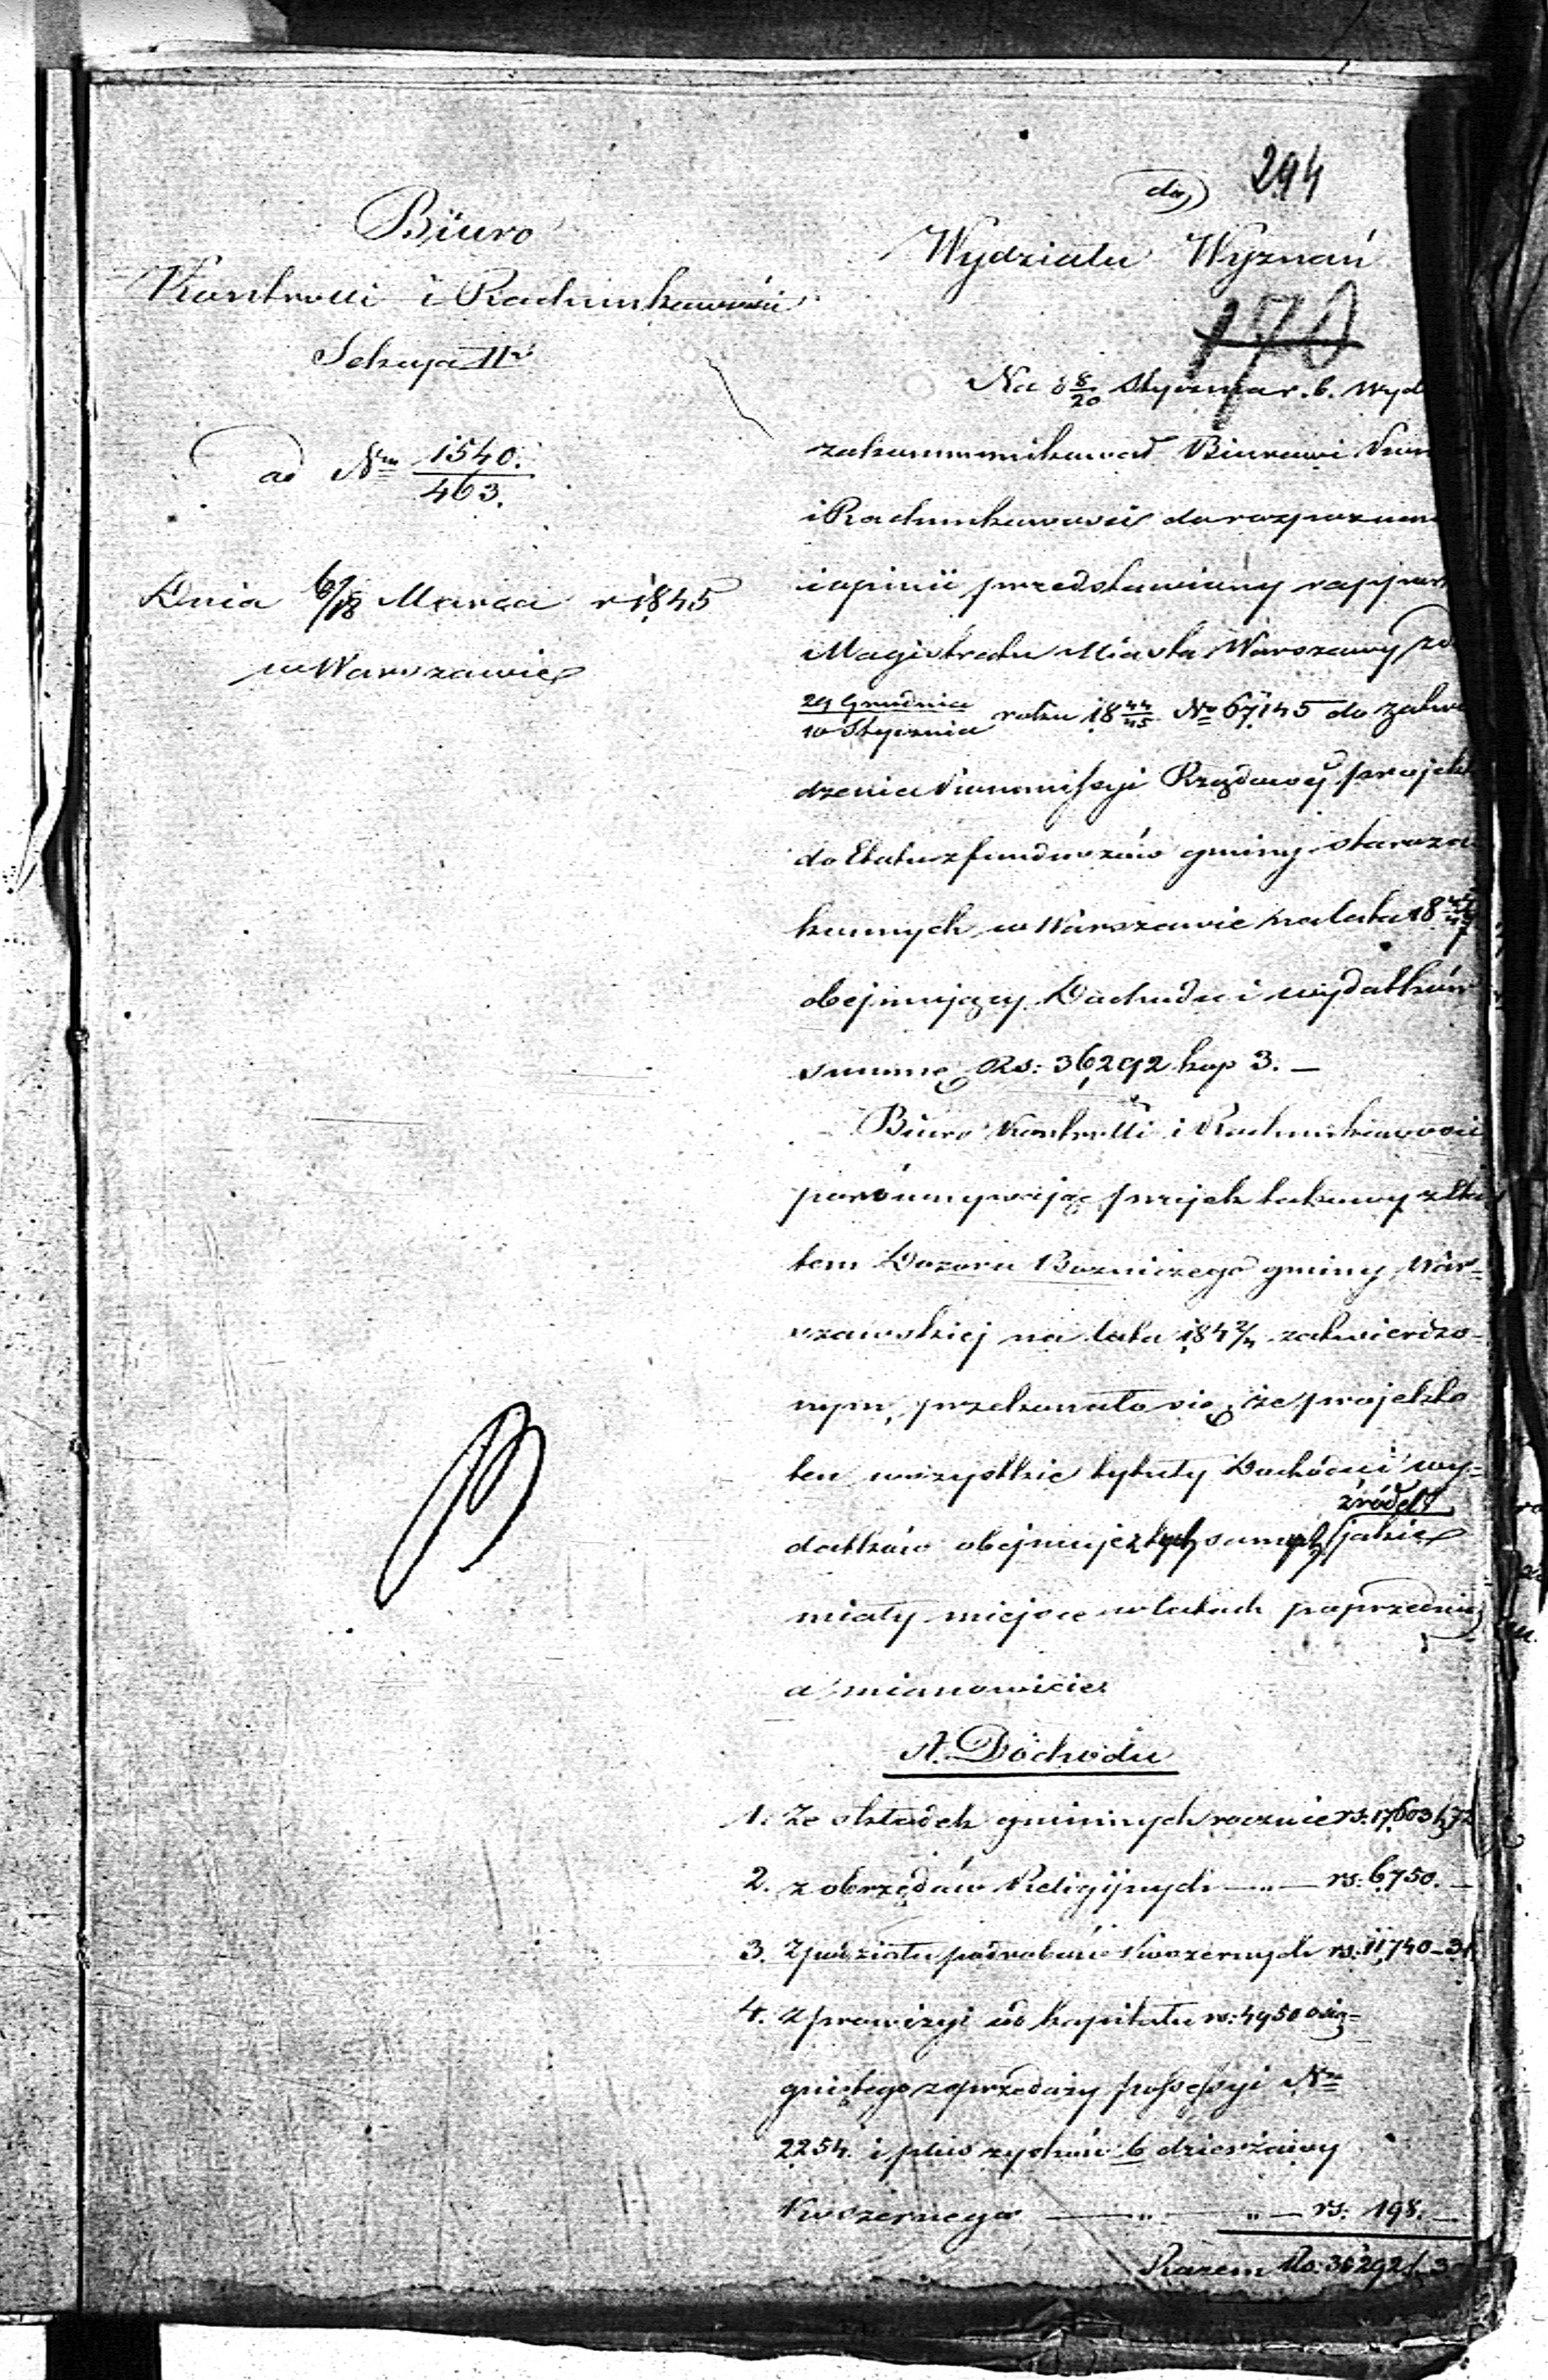 294
Biuro
Kontrolli i Rachunkowości
Sekcya II
ad Nrm 1540./463.
Dnia 6/18 Marca r 1845
w Warszawie
do
Wydziału Wyznań
170
Na d 8/20 Stycznia r. b. Wyd
zakommunikował Biurowi Kon
i Rachunkowości do rozpoznan
i opinii przedstawiony rapport
Magistratu Miasta Warszawy
29 Grudnia/10 Stycznia roku 18 44/45 No 67145 do zatwi
dzenia Kommissyi Rządowéj projekt
do Etatu z funduszów gminy staroza
konnych w Warszawie na lata 18
obejmujący Dochodu i wydatków
summę Rs: 36,292 kop 3. —
Biuro Kontrolli i Rachunkowości
porównywając projekt takowy z Eta
tem Dozoru Bozniczego gminy War=
szawskiej na lata 184 2/4 zatwierdzo=
nym, przekonało się, że projekt
ten wszystkie tytuły Dochodu i wy=
źródeł
datków obejmuje z tych samych jakie
miały miejsce w latach poprzednich
a mianowicie
A. Dochodu
1. Ze składek gminnych rocznie rs: 17,603 k 72
2. z obrzędów Religijnych —„— rs: 6,750. —
3. Z podziału podrobów Koszernych rs: 11,740 — 31
4. z prowizyi od kapitału rs: 4950 osią=
gniętego z sprzedaży possessyi Nrm
2254. i plus zysków b dzierżawy
Koszernego —„—„— rs: 198. —
Razem Rs: 36292 k 3